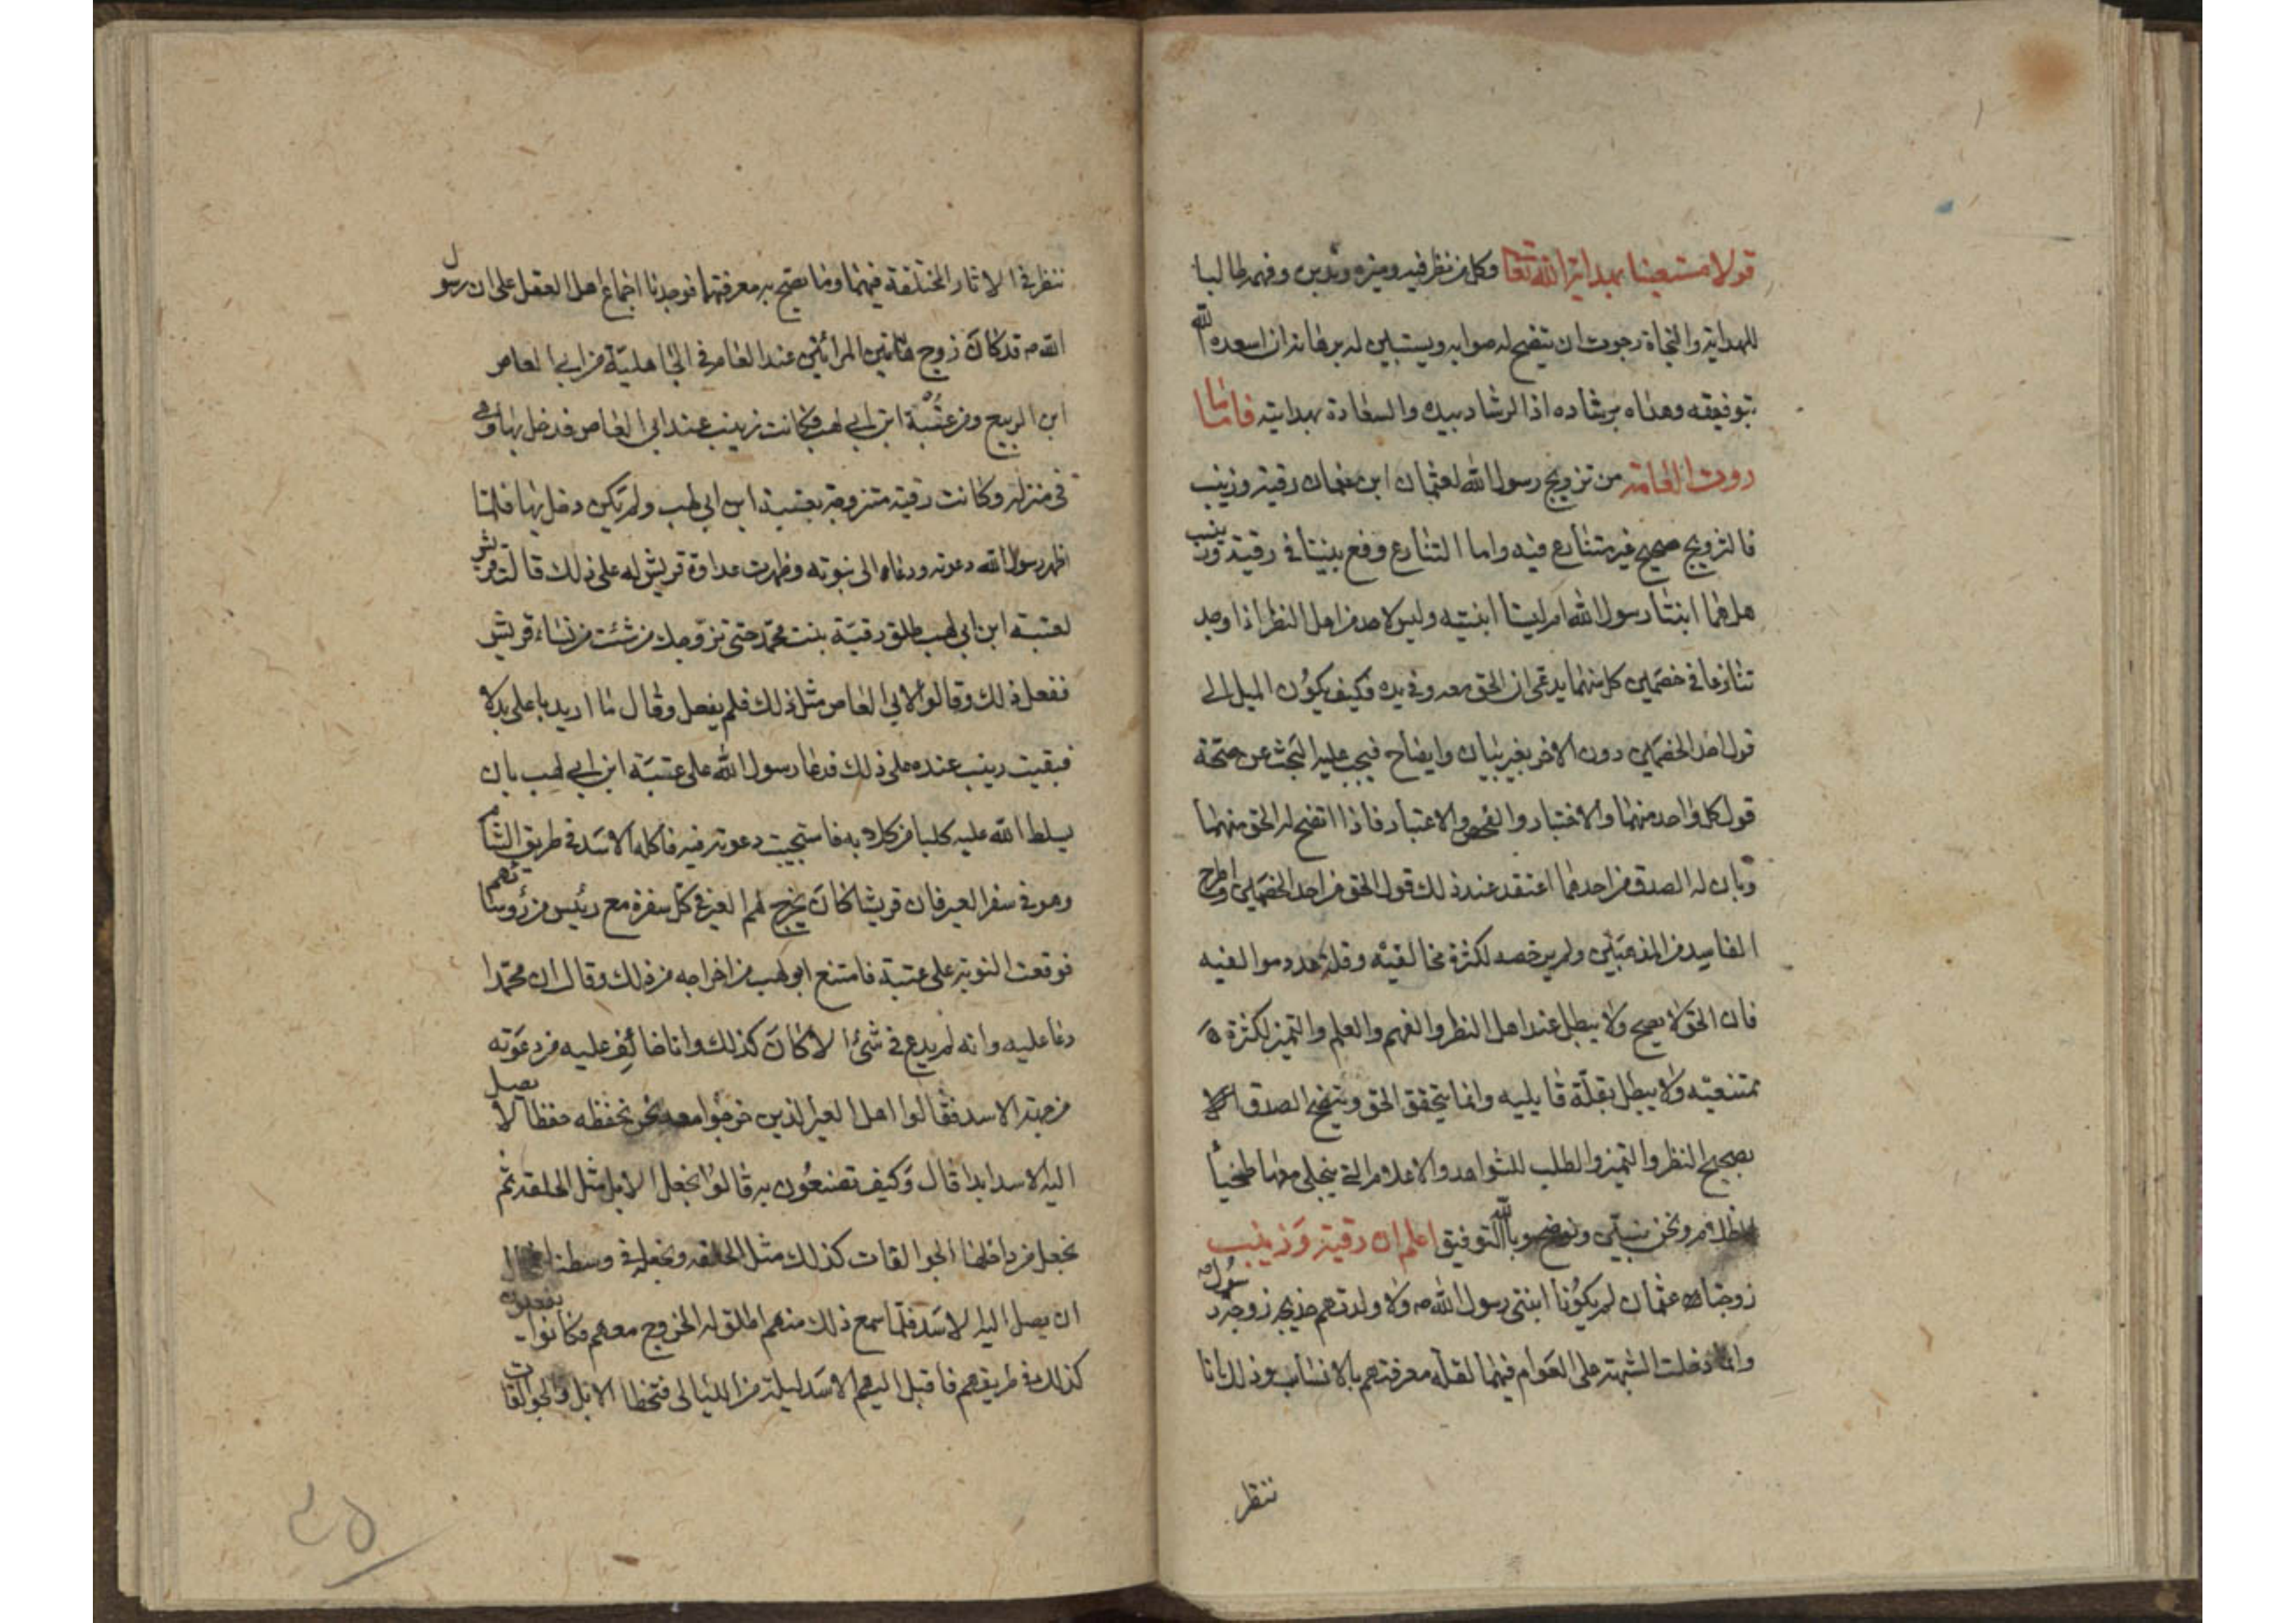 قولا مستعينا بهداية الله تعا وكل من نظر فيه وميزه وتدبن وفهمه طالبا
للهداية والنجاة رجوت ان يتضح له صوابه ويستبين له برهانه ان اسعده الله
بتوفيقه وهداه برشاده اذا الرشاد بيده والسعادة بهدايته فاما ما
روت العامة من تزويج رسول الله لعثمان ابن عفمان رقية وزينب
فالتزويج صحيح غير متنازع فيه واما التنازع وقع بيننا في رقية وزينب
هل هما ابنتا رسول الله ام ليستا ابنتيه وليس لاحد من اهل النظر اذا وجد
تنازعا في خصمين كل منهما يدعى ان الحق معه وفي يده وكيف يكون الميل الى
قول احد الخصمين دون الاخر بغير بيان وايضاح فيجب عليه البحث عن صحة
قول كل واحد منهما والاختبار والفحص والاعتبار فاذا اتضح له الحق منهما
وبان له الصدق من احدهما اعتقد عند ذلك قول الحق من احد الخصمين واطرح
الفاسد من المذهبين ولم يرخصه لكثرة مخالفيه وقلة عدد موالفيه
فان الحق لا يصح ولا يبطل عند اهل النظر والفهم والعلم والتميز لكثرة
متتبعيه ولا يبطل بقلة قابليه وانما يتحقق الحق ويتضح الصدق
بصحيح النظر والتميز والطلب للشواهد والاعلام التي ينجلي معها طخيا
الظلام ونحن نبين ونوضح وبالله التوفيق اعلم ان رقية وزينب
زوجتا عثمان لم يكونا ابنتى رسول الله ص ولا ولدتهم خديجة زوجة رسول
وانما دخلت الشبهة على العوام فيهما لقلة معرفتهم بالانساب وذلك انا
ننظر
ننظر في الاثار المختلفة فيهما وما يصح به معرفتهما فوجدنا اجماع اهل العقل على ان رسول
الله ص قد كان زوج هاتين المرأتين عند العامر في الجاهلية من ابي العاص
ابن الربيع ومن عتبة ابن ابي لهب فكانت زينب عند ابي العاص قد دخل بها وهى
في منزله وكانت رقية متزوجة بعتبة ابن ابي لهب ولم يكن دخل بها فلما
اظهر رسول الله دعوته ودعاه الى نبوته وظهرت عداوة قريش له على ذلك قالت قريش
لعتبة ابن ابي لهب طلق رقية بنت محمد حتى نزوجك من شئت من نساء قريش
ففعل ذلك وقالوا لابي العاص مثل ذلك فلم يفعل وقال ما اريد باهلي بدلا
فبقيت زينب عنده على ذلك فدعا رسول الله على عتبة ابن ابي لهب بان
يسلط الله عليه كلبا من كلابه فاستجيبت دعوته فيه فاكله الاسد في طريق الشام
وهو في سفر العير فان قريشا كان يخرج لهم العير في كل سفرة مع رئيس من رؤسائهم
فوقعت النوبة على عتبة فامتنع ابو لهب من اخراجه من ذلك وقال ان محمدا
دعا عليه وانه لم يدع في شئ الا كان كذلك وانا خائف عليه من دعوته
من جهة الاسد فقالوا اهل العير الذين خرجوا معه نحن نحفظه حفظا لا يصل
اليه الاسد ابدا قال وكيف تصنعون به قالوا نجعل الابل مثل الحلقة ثم
نجعل من داخلها الجوالقات كذلك مثل الحلقه ونجعله في وسطنا
ان يصل اليه الاسد فلما سمع ذلك منهم اطلق له الخروج معهم فكانوا يفعلون
كذلك في طريقهم فاقبل اليهم الاسد ليلة من الليالي فتخطا الابل والجوالقات